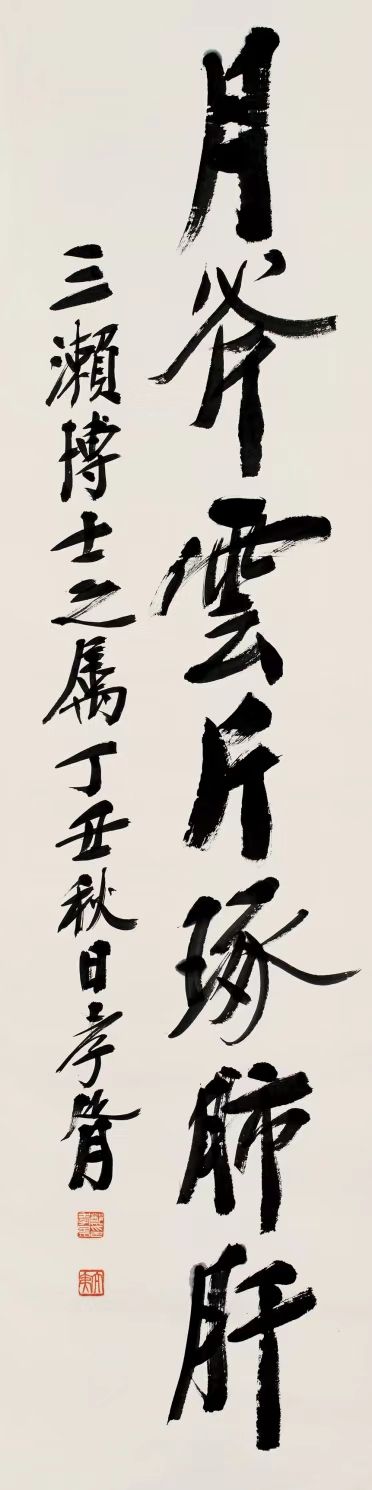 月斧雲斤琢肺肝
三瀨博士之属丁丑秋日孝胥